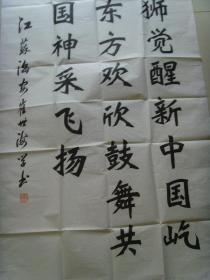 狮觉醒新中国屹
东方欢欣鼓舞共
国神采飞扬
江苏海安崔世海学书